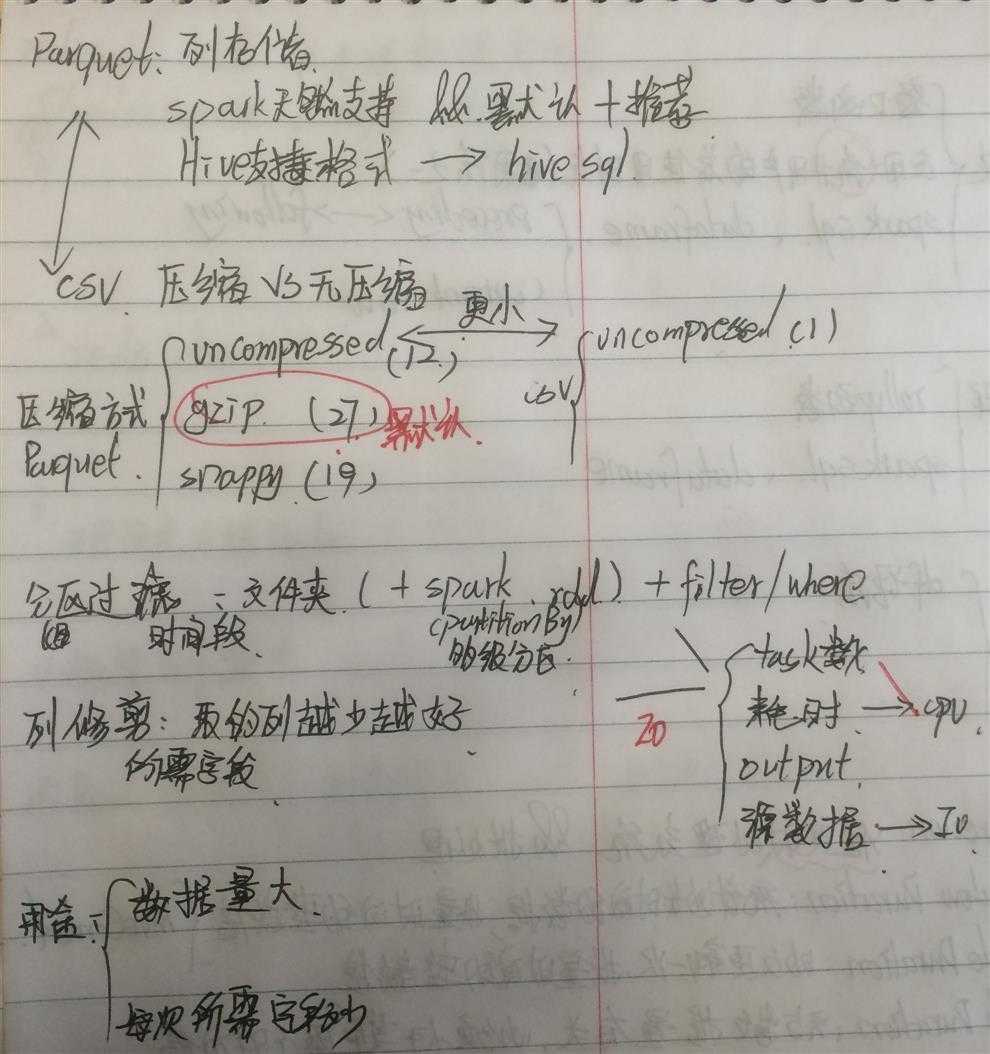 Parquet: 列存储
spark天然支持 默认+推荐
Hive支持格式 → hive sql
CSV 压缩 VS 无压缩
uncompressed (12) 更小 uncompressed (1)
压缩方式 gzip (27) 默认 CSV
Parquet snappy (19)
分区过滤: 文件夹 (+ spark rdd) + filter/where
时间段 (partitionBy)
分区
task数
列修剪: 取的列越少越好 IO 耗时 → cpu
所需字段 output
源数据 → IO
用途: 数据量大
每次所需字段少